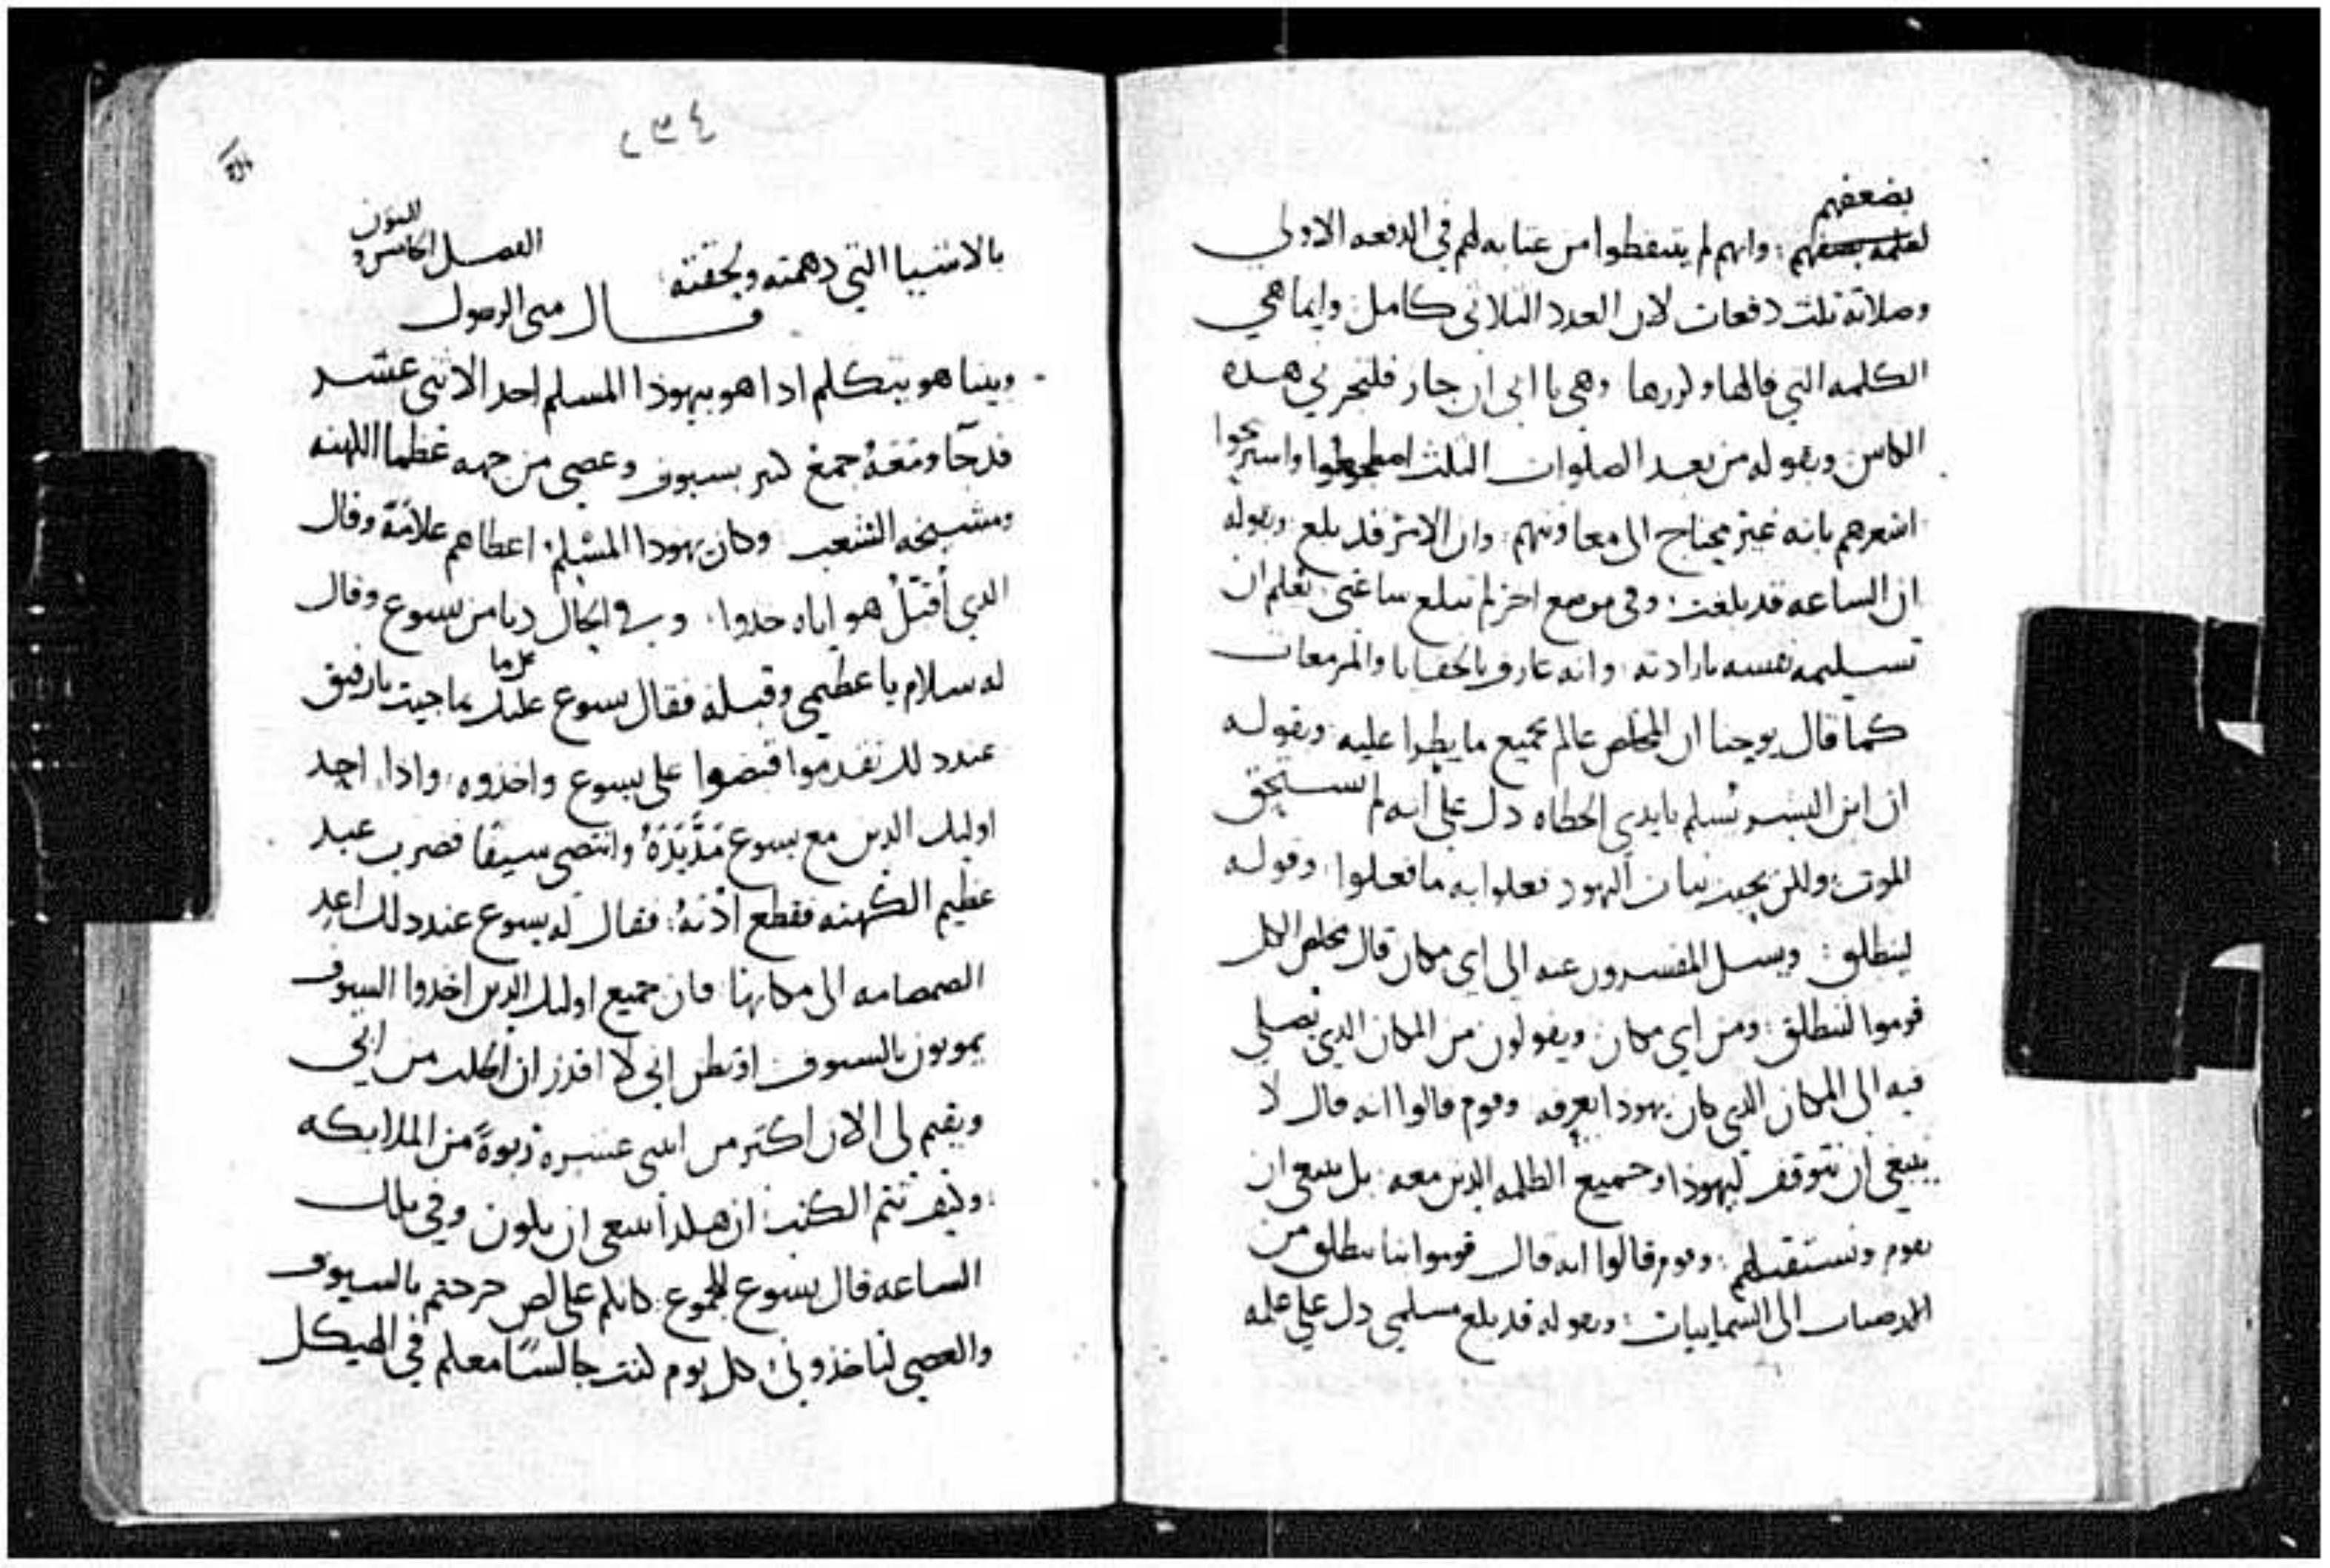 بضعفهم
لعلمه بضعفهم : وانهم لم يتيقظوا من عتابه لهم في الدفعه الاولى
وصلاته ثلث دفعات لان العدد الثلاثى كامل وانما هي
الكلمه التي قالها وكررها وهي يا ابى ان جاز فليجز بي هده
الكاس وبقوله من بعد الصلوات الثلث واستريحوا
اشعرهم بانه غير محتاج الى معاونتهم : وان الامر قد بلغ : وبقوله
ان الساعه قد بلغت : وفي موضع اخر لم تبلغ ساعتى : تعلم ان
تسليمه نفسه بارادته : وانه عارف بالخفايا والمزمعات
كما قال يوحنا ان المخلص عالم بجميع ما يطرا عليه : وبقوله
ان ابن البشر نسلم بايدي الخطاه دل على انه لم يستحق
الموت : ولكن بخبث نيات اليهود فعلوا به ما فعلوا : وقوله
لينطلق : ويسل المفسرون عنه الى اى مكان قال مخلص الكل
قوموا لننطلق : ومن اي مكان : ويقولون من المكان الدي يصلي
فيه الى المكان الدي كان يهودا يعرفه وقوم قالوا انه قال لا
ينبغي ان نتوقف ليهودا وجميع الظلمه الدين معه : بل ينبغي ان
نقوم ونستقبلهم : وقوم قالوا انه قال قوموا بنا ننطلق من
الارضيات الى السماييات : وبقوله قد بلغ مسلمي دل على علمه
٢٣٤
بالاشيا التي دهمته ولحقته : الفصل الخامس و السبعون
قال متى الرسول
وبينا هو يتكلم ادا هو بيهودا المسلم احد الاثنى عشر
قد جا ومعه جمع كثير بسيوف وعصي من جهه عظما الكهنه
ومشيخه الشعب : وكان يهودا المسلم اعطاهم علامة وقال
الدي أقبل هو اياه خدوا : وفي الحال دنا من يسوع وقال
له سلام يا عظيمي وقبله فقال يسوع على ما جيت يا رفيق
عندد لك تقدموا قبضوا على يسوع واخذوه : واذا احد
اوليك الدين مع يسوع مد يده وانتضى سيفا فضرب عبد
عظيم الكهنه فقطع ادنه : فقال له يسوع عند دلك اعد
الصمصامه الى مكانها : فان جميع اوليك الدين اخدوا السيوف
يموتون بالسيوف او تظن انى لا اقدر ان اطلب من ابى
ويقيم لى الان اكثر من اثنى عشره ربوة من الملايكه
وكيف تتم الكتب : ان هكدا ينبغى ان يكون وفي تلك
الساعه قال يسوع للجموع : كانكم على لص خرجتم بالسيوف
والعصي لتاخذونى كل يوم كنت جالسًا معلم في الهيكل